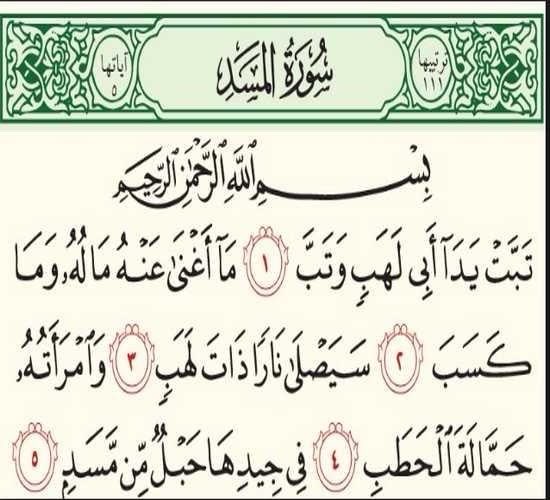 ترتيبها ١١١ سُورَةُ المَسَدِ آياتها ٥
بِسْمِ ٱللَّهِ ٱلرَّحْمَٰنِ ٱلرَّحِيمِ
تَبَّتْ يَدَآ أَبِى لَهَبٍ وَتَبَّ ١ مَآ أَغْنَىٰ عَنْهُ مَالُهُۥ وَمَا
كَسَبَ ٢ سَيَصْلَىٰ نَارًا ذَاتَ لَهَبٍ ٣ وَٱمْرَأَتُهُۥ
حَمَّالَةَ ٱلْحَطَبِ ٤ فِى جِيدِهَا حَبْلٌ مِّن مَّسَدٍ ٥